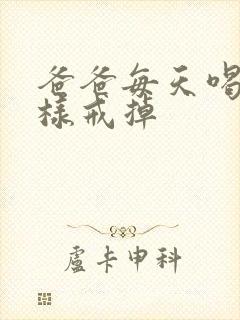 爸爸每天喝
样戒掉
卢卡申科